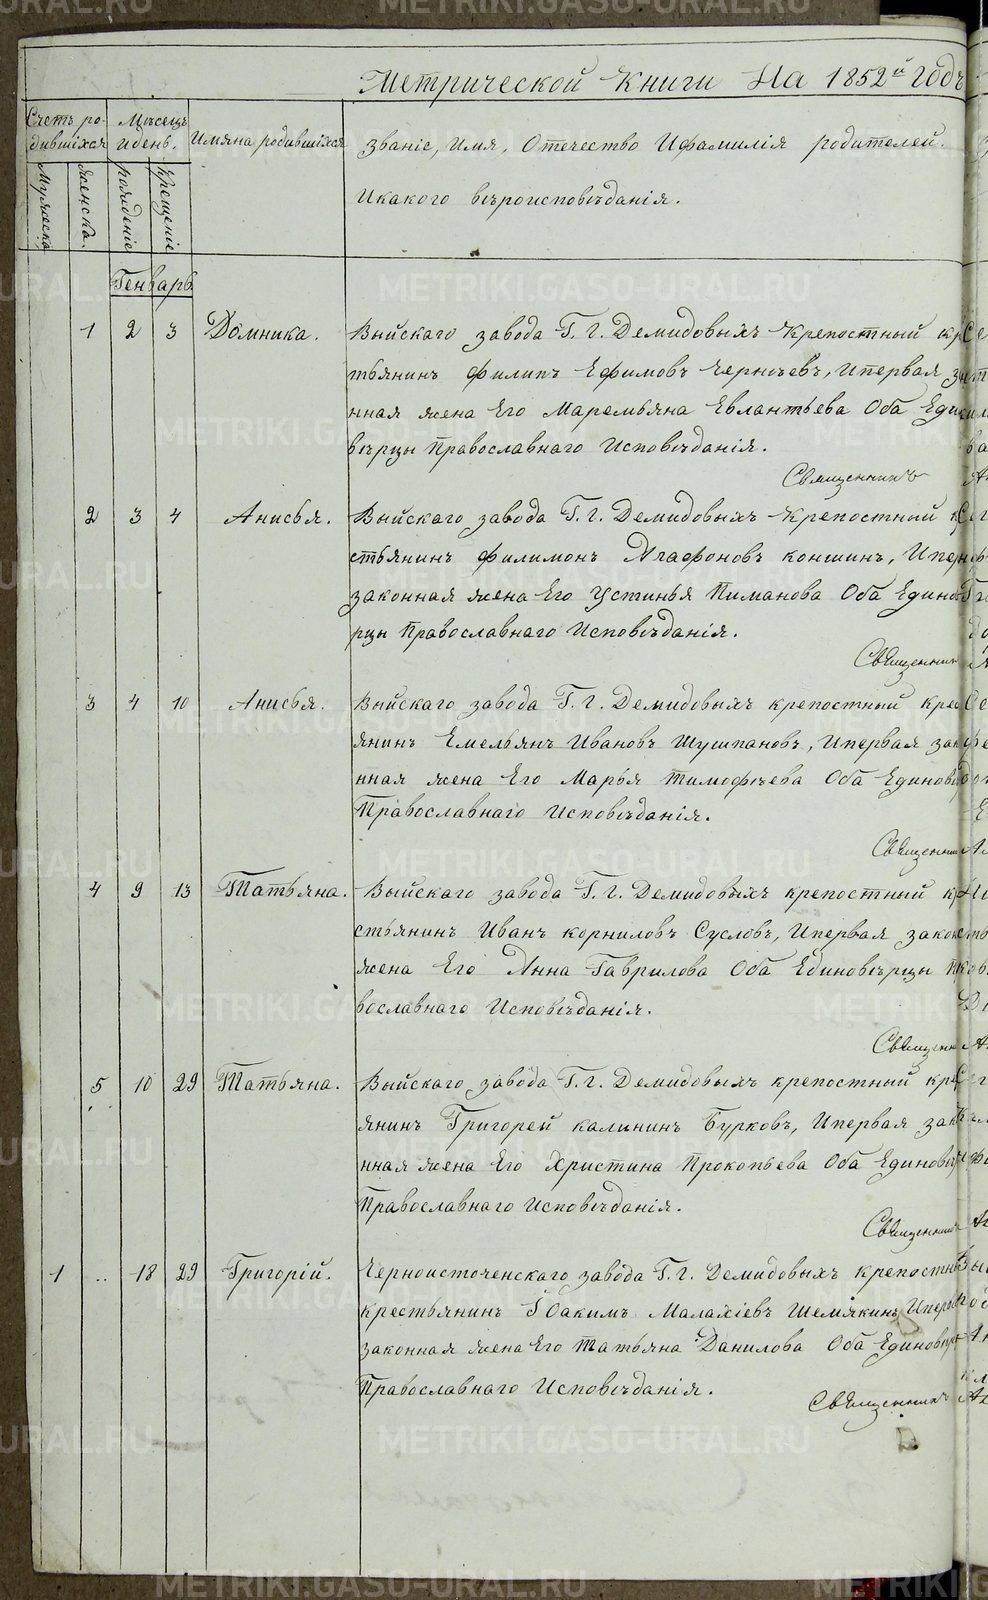 Метрической Книги На 1852й годъ
Счетъ ро-
дившихся
Мѣсецъ
и день.
Имяна родившихся
Званіе, Имя, Отечество И фамилія родителей.
И какого вѣроисповѣданія.
Мужеска
Женска.
рожденіе
Крещеніе
Генварь
1 2 3 Домника. Выйскаго завода Г. г. Демидовыхъ Крепостный кр
тьянинъ филипъ Ефимовъ Чернычевъ, И первая за
нная жена Его Маремьяна Евлантьева Оба Един
вѣрцы Православнаго Исповѣданія.
Священникъ
2 3 4 Анисья. Выйскаго завода Г. г. Демидовыхъ Крепостный к
стьянинъ филимонъ Агафоновъ коншинъ, И пер
законная жена Его Устинья Пиманова Оба Едино
рцы Православнаго Исповѣданія.
Священник
3 4 10 Анисья. Выйскаго завода Г. г. Демидовыхъ крепостный крес
янинъ Емельянъ Ивановъ Шушпановъ, И первая зак
нная жена Его Марья Тимофѣева Оба Единовѣ
Православнаго Исповѣданія.
Священни
4 9 13 Татьяна. Выйскаго завода Г. г. Демидовыхъ крепостный кр
стьянинъ Иванъ корниловъ Сусловъ, И первая закон
жена Его Анна Гаврилова Оба Единовѣрцы П
вославнаго Исповѣданія.
Священн
5 10 29 Татьяна. Выйскаго завода Г. г. Демидовыхъ крепостный кре
янинъ Григорей калининъ Бурковъ, И первая зак
нная жена Его Христина Прокопьева Оба Единовѣ
Православнаго Исповѣданія.
Священник
1 .. 18 29 Григорій. Черноисточенскаго завода Г. г. Демидовыхъ крепостн
крестьянинъ Іоакимъ Малахіевъ Шемякинъ, И перв
законная жена Его Татьяна Данилова Оба Единовѣр
Православнаго Исповѣданія.
Священникъ
METRIKI.GASO-URAL.RU